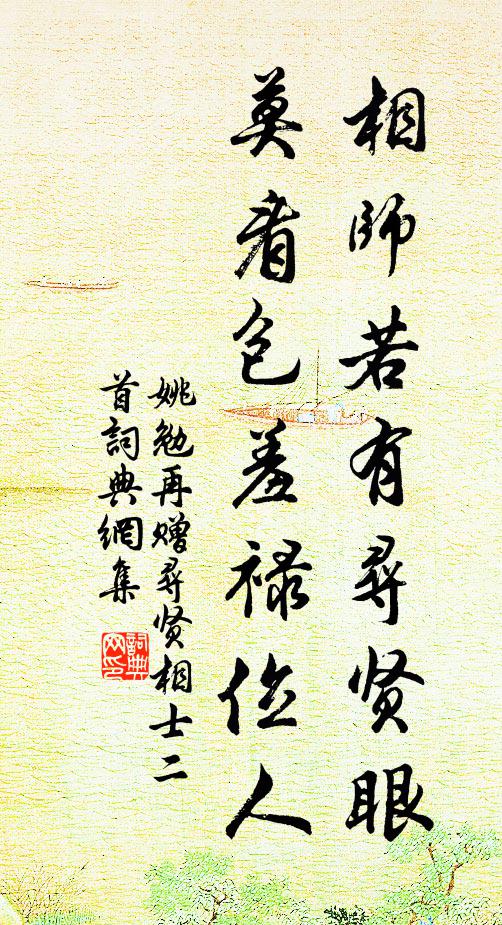 相師若有尋贤眼
莫看包羞禄位人
姚勉再赠尋贤相士二
首詞典網集
詞典网印